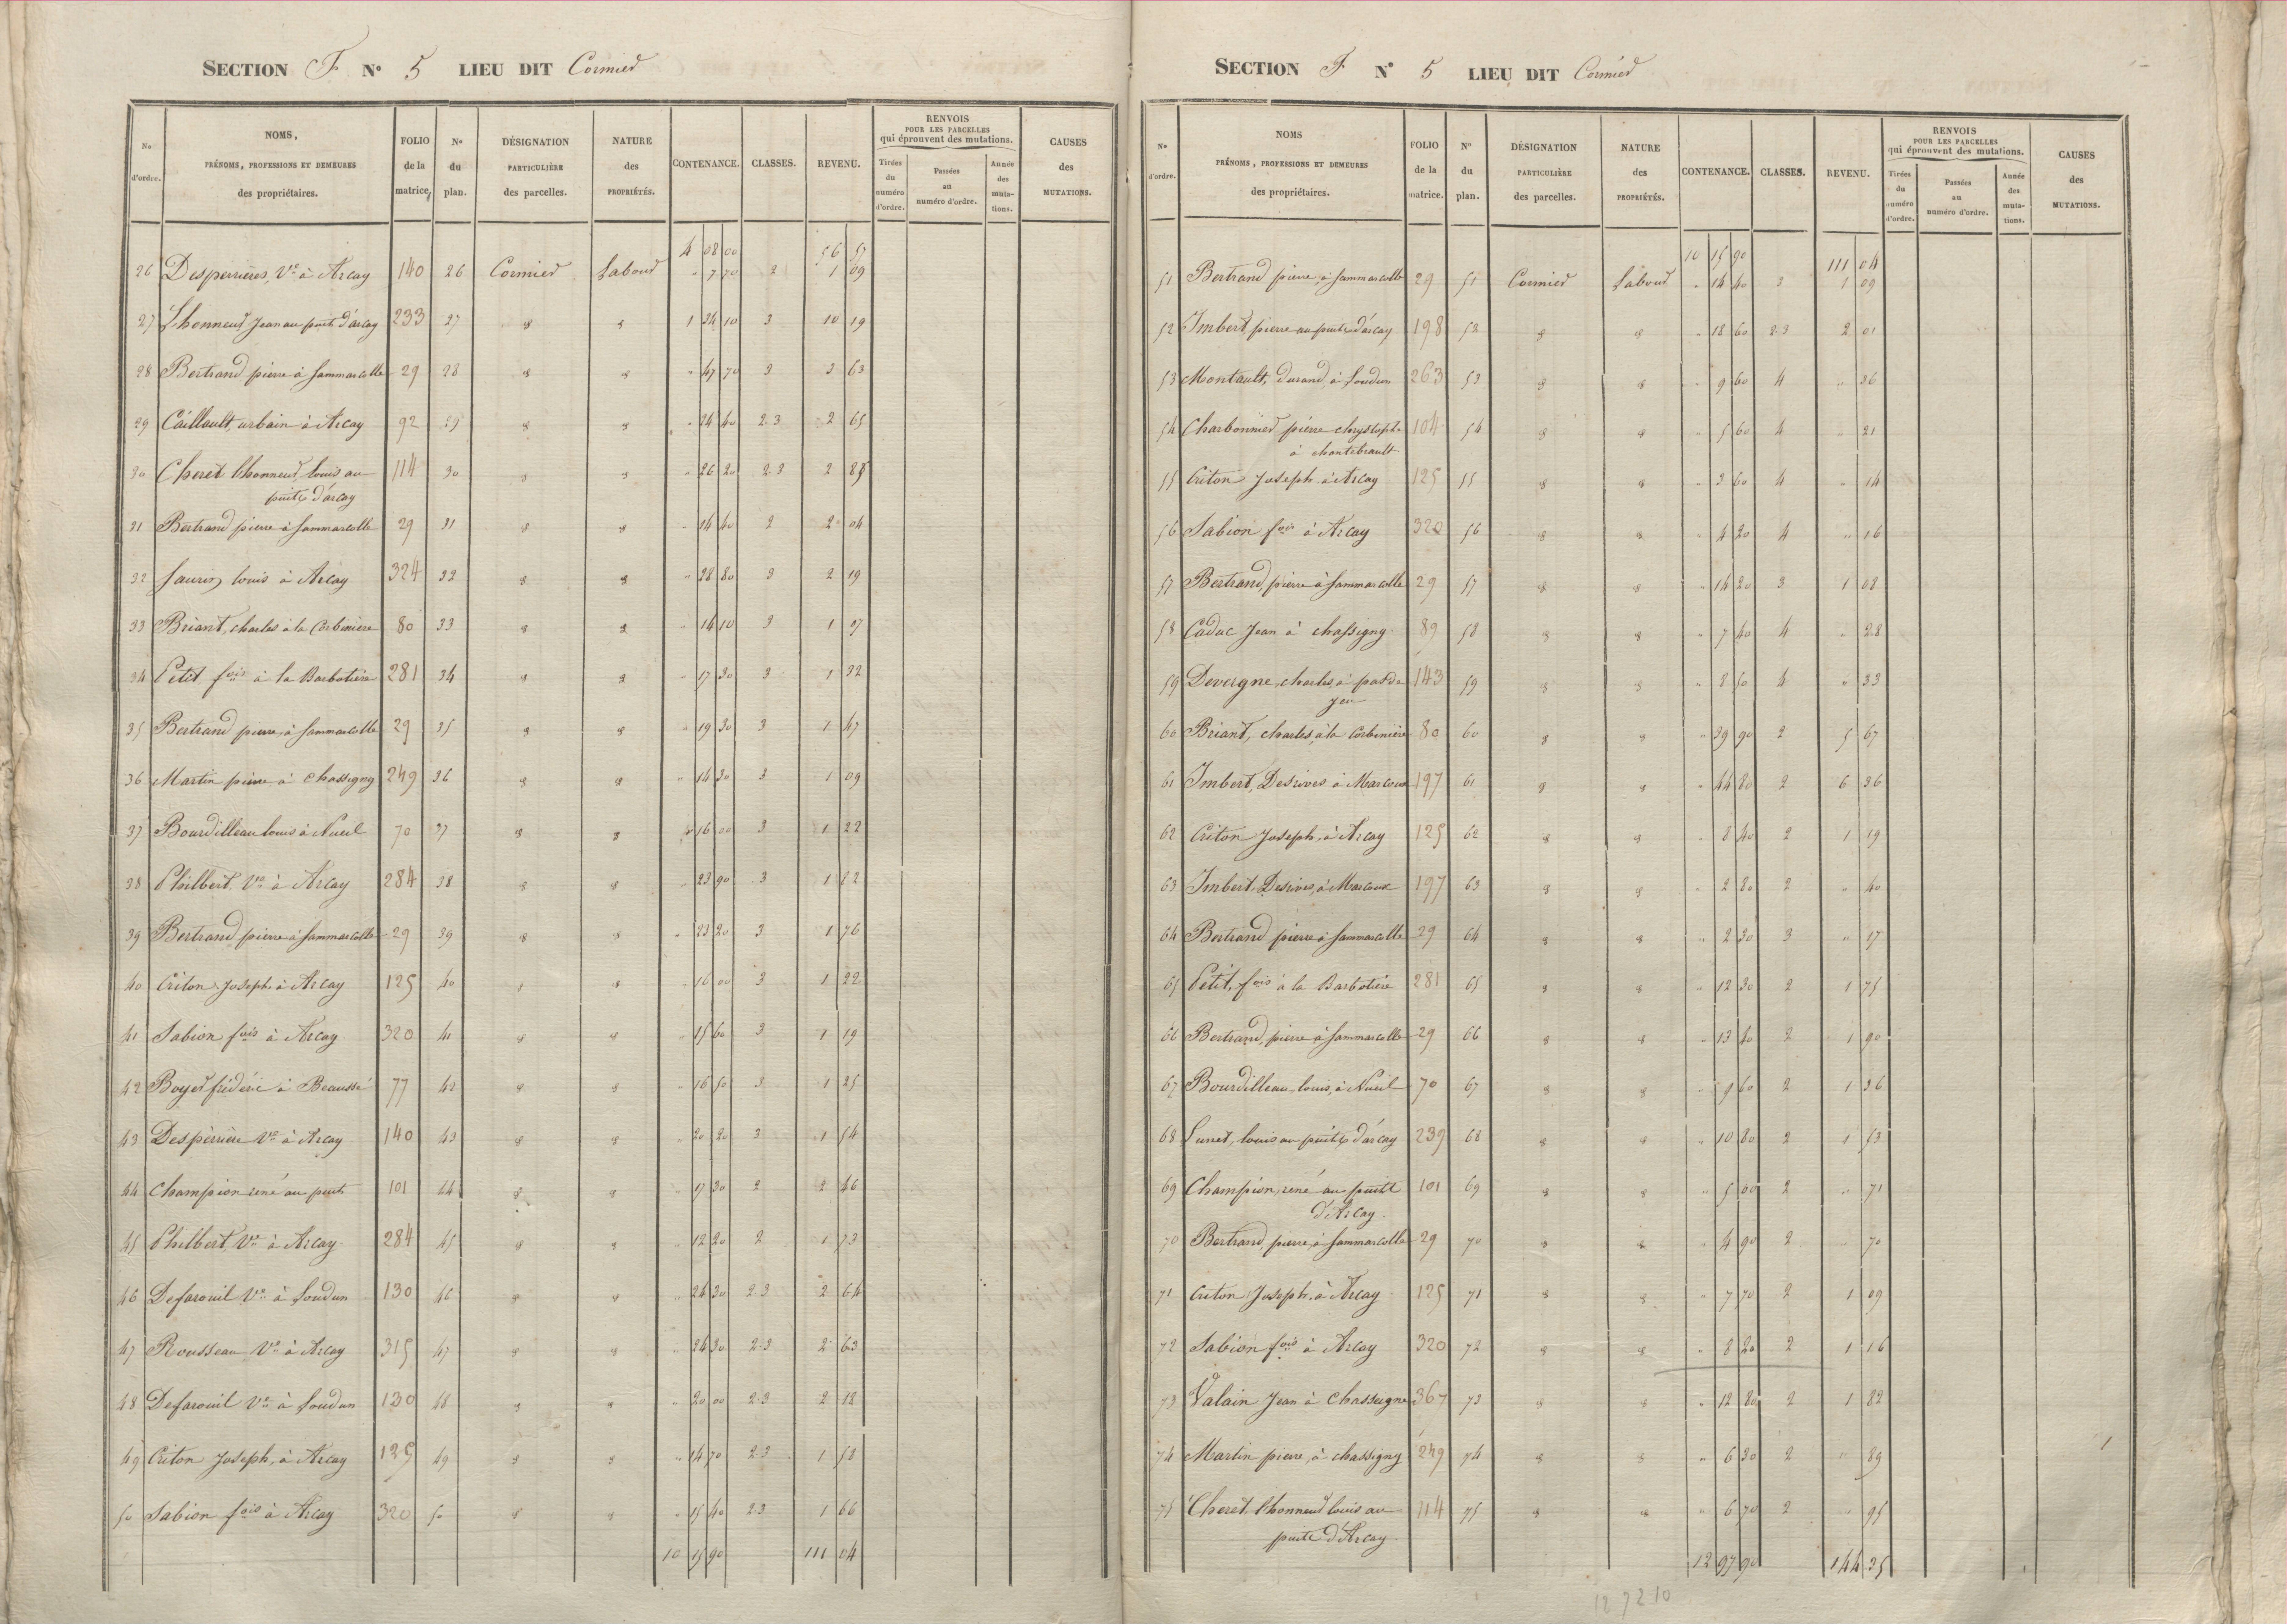 SECTION F N° 5 LIEU DIT Cormier
N° d'ordre. NOMS, PRÉNOMS, PROFESSIONS ET DEMEURES des propriétaires. FOLIO de la matrice. N° du plan. DÉSIGNATION PARTICULIÈRE des parcelles. NATURE des PROPRIÉTÉS. CONTENANCE. CLASSES. REVENU. RENVOIS POUR LES PARCELLES qui éprouvent des mutations. Tirées du numéro d'ordre. Passées au numéro d'ordre. Année des mutations. CAUSES des MUTATIONS.
4 08 00 56 57
26 Desperrieres, Ve à Arcay 140 26 Cormier Labour " 7 70 2 1 09
27 Lhonneur Jean au puits d'arcay 233 27 " " 1 34 10 3 10 19
28 Bertrand pierre à Sammarcolle 29 28 " " " 47 70 3 3 63
29 Caillault, urbain à Arcay 92 29 " " " 24 40 2.3 2 65
30 Cheret lhonneur, louis au 114 30 " " " 26 20 2.3 2 85
puits d'arcay
31 Bertrand pierre à Sammarcolle 29 31 " " " 14 40 2 2 04
32 Saurin, louis à Arcay 324 32 " " " 28 80 3 2 19
33 Briant, charles à la Corbiniere 80 33 " " " 14 10 3 1 07
34 Petit fois à la Barbotiere 281 34 " " " 17 30 3 1 32
35 Bertrand pierre à Sammarcolle 29 35 " " " 19 30 3 1 47
36 Martin pierre à Chassigny 249 36 " " " 14 30 3 1 09
37 Bourdilleau louis à Nueil 70 37 " " " 16 00 3 1 22
38 Philbert Ve à Arcay 284 38 " " " 23 90 3 1 82
39 Bertrand pierre à Sammarcolle 29 39 " " " 23 20 3 1 76
40 Criton Joseph à Arcay 125 40 " " " 16 00 3 1 22
41 Sabion fois à Arcay 320 41 " " " 15 60 3 1 19
42 Boyer frédéric à Beaussé 77 42 " " " 16 50 3 1 25
43 Desperrière Ve à Arcay 140 43 " " " 20 20 3 1 54
44 Champion rené au puits 101 44 " " " 17 30 2 2 46
45 Philbert Ve à Arcay 284 45 " " " 12 20 2 1 73
46 Defarouil Ve à Loudun 130 46 " " " 24 30 2.3 2 64
47 Rousseau Ve à Arcay 315 47 " " " 24 30 2.3 2 63
48 Defarouil Ve à Loudun 130 48 " " " 20 00 2.3 2 18
49 Criton Joseph, à Arcay 125 49 " " " 14 70 2.3 1 58
50 Sabion fois à Arcay 320 50 " " " 15 40 2.3 1 66
10 15 90 111 04
SECTION F N° 5 LIEU DIT Cormier
N° d'ordre. NOMS PRÉNOMS, PROFESSIONS ET DEMEURES des propriétaires. FOLIO de la matrice. N° du plan. DÉSIGNATION PARTICULIÈRE des parcelles. NATURE des PROPRIÉTÉS. CONTENANCE. CLASSES. REVENU. RENVOIS POUR LES PARCELLES qui éprouvent des mutations. Tirées du numéro d'ordre. Passées au numéro d'ordre. Année des mutations. CAUSES des MUTATIONS.
10 15 90 111 04
51 Bertrand pierre, à Sammarcolle 29 51 Cormier Labour " 14 40 3 1 09
52 Imbert pierre au puits d'arcay 198 52 " " " 18 60 2.3 2 01
53 Montault, durand, à Loudun 263 53 " " " 9 60 4 " 36
54 Charbonnier pierre chrystophe 104 54 " " " 5 60 4 " 21
à chantebrault
55 Criton Joseph à Arcay 125 55 " " " 3 60 4 " 14
56 Sabion fois à Arcay 320 56 " " " 4 20 4 " 16
57 Bertrand, pierre à Sammarcolle 29 57 " " " 14 20 3 1 08
58 Caduc Jean à chassigny 89 58 " " " 7 40 4 " 28
59 Devergne, charles, à pas de 143 59 " " " 8 50 4 " 33
jeu
60 Briant, charles, à la Corbiniere 80 60 " " " 39 90 2 5 67
61 Imbert, Desrives à Marcoux 197 61 " " " 44 80 2 6 36
62 Criton Joseph, à Arcay 125 62 " " " 8 40 2 1 19
63 Imbert Desrives, à Marcoux 197 63 " " " 2 80 2 " 40
64 Bertrand pierre à Sammarcolle 29 64 " " " 2 30 3 " 17
65 Petit, fois à la Barbotiere 281 65 " " " 12 30 2 1 75
66 Bertrand, pierre à Sammarcolle 29 66 " " " 13 40 2 1 90
67 Bourdilleau, louis, à Nueil 70 67 " " " 9 60 2 1 36
68 Lunet, louis au puits d'arcay 239 68 " " " 10 80 2 1 53
69 Champion, rené au puits 101 69 " " " 5 00 2 " 71
d'Arcay
70 Bertrand, pierre, à Sammarcolle 29 70 " " " 4 90 2 " 70
71 Criton Joseph, à Arcay 125 71 " " " 7 70 2 1 09
72 Sabion fois à Arcay 320 72 " " " 8 20 2 1 16
73 Valain Jean à Chasseigne 367 73 " " " 12 80 2 1 82
74 Martin pierre, à chassigny 249 74 " " " 6 30 2 " 89
75 Cheret, lhonneur louis au 114 75 " " " 6 70 2 " 95
puits d'Arcay
12 97 90 144 35
12 92 10